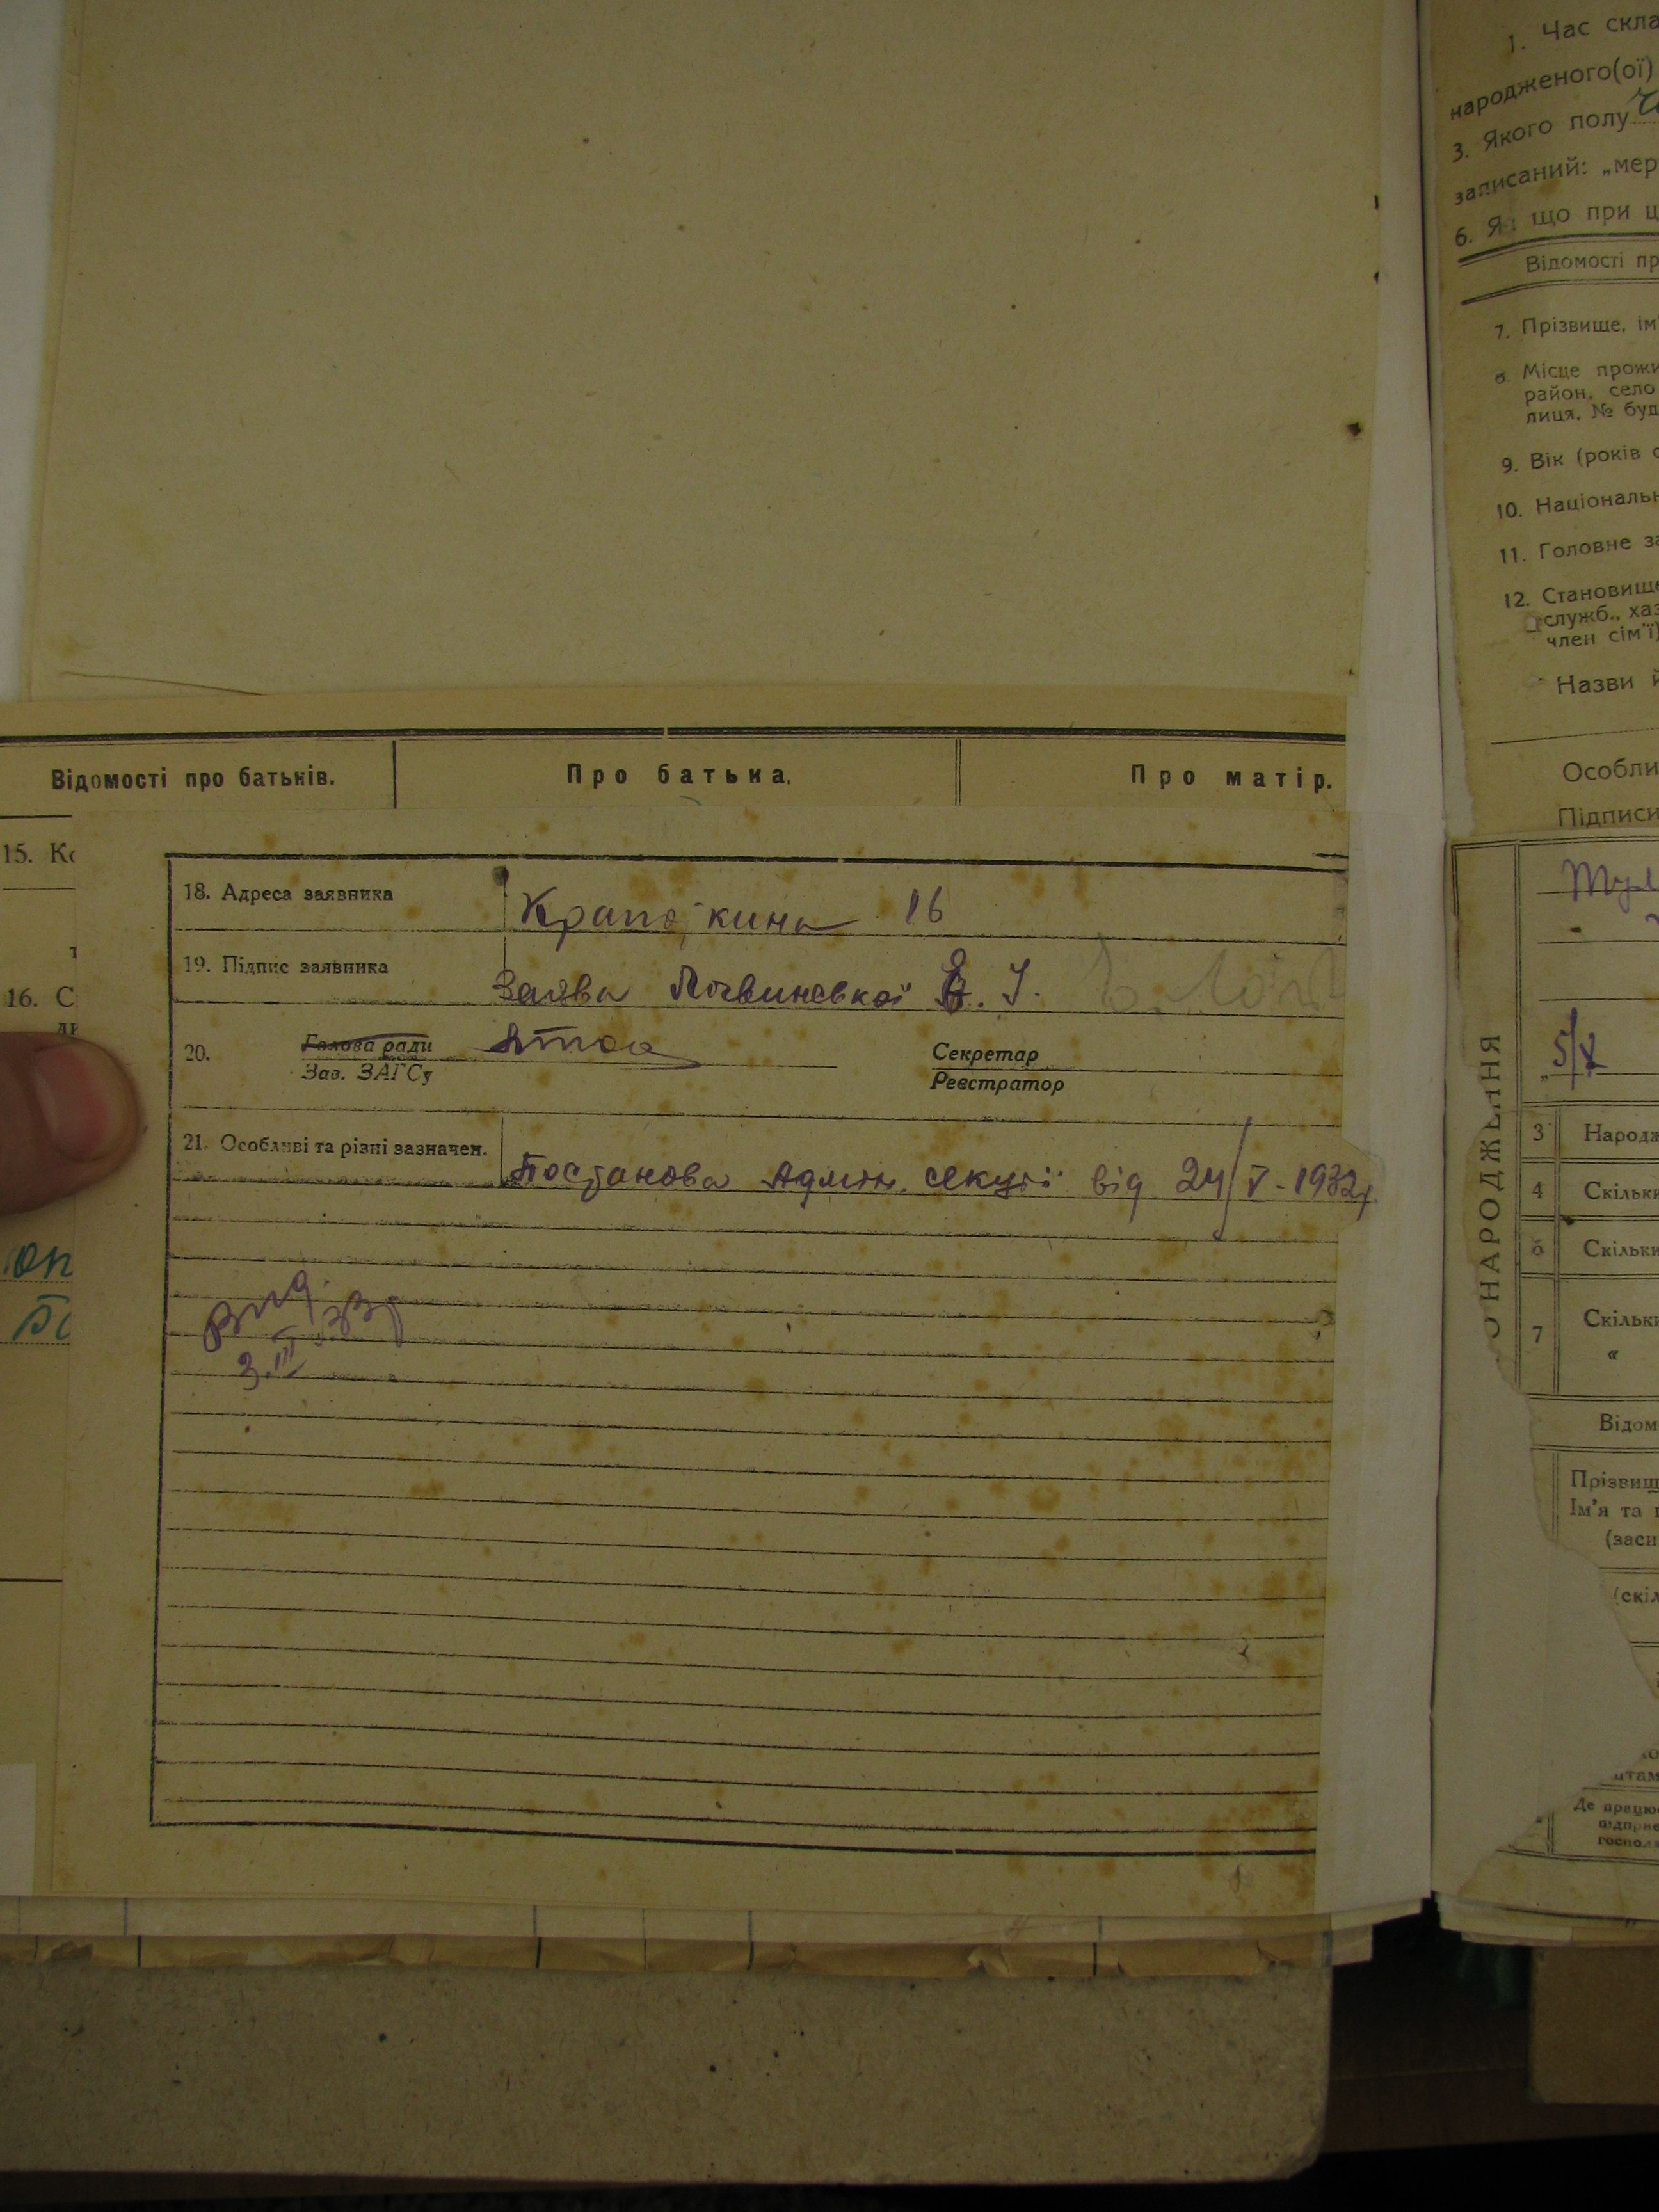 Відомості про батьків. Про батька. Про матір.
15.
16. С
18. Адреса заявника Крапоткина 16
19. Підпис заявника Заява Літвиневкої Є. І.
20. Голова ради Секретар
Зав. ЗАГСу Реєстратор
21. Особливі та різні зазначен. Постанова Админ. секції від 24/V-1932р
Вид.
3.III.33р
1. Час скла
народженого(ої)
3. Якого полу
записаний: „мер
6. Я що при ц
Відомості пр
7. Прізвище, ім'
Місце прожи
район, село
лиця, № буд
9. Вік (років
10. Національн
11. Головне за
12. Становище
служб., хаз
член сім'ї)
Назви й
Особли
Підписи
5/X
О НАРОДЖЕННЯ
3 Народж
4 Скільки
6 Скільки
7 Скільки
"
Відом
Прізвищ
Ім'я та
(засн
(скіл
штам
Де працює
підприє
господ